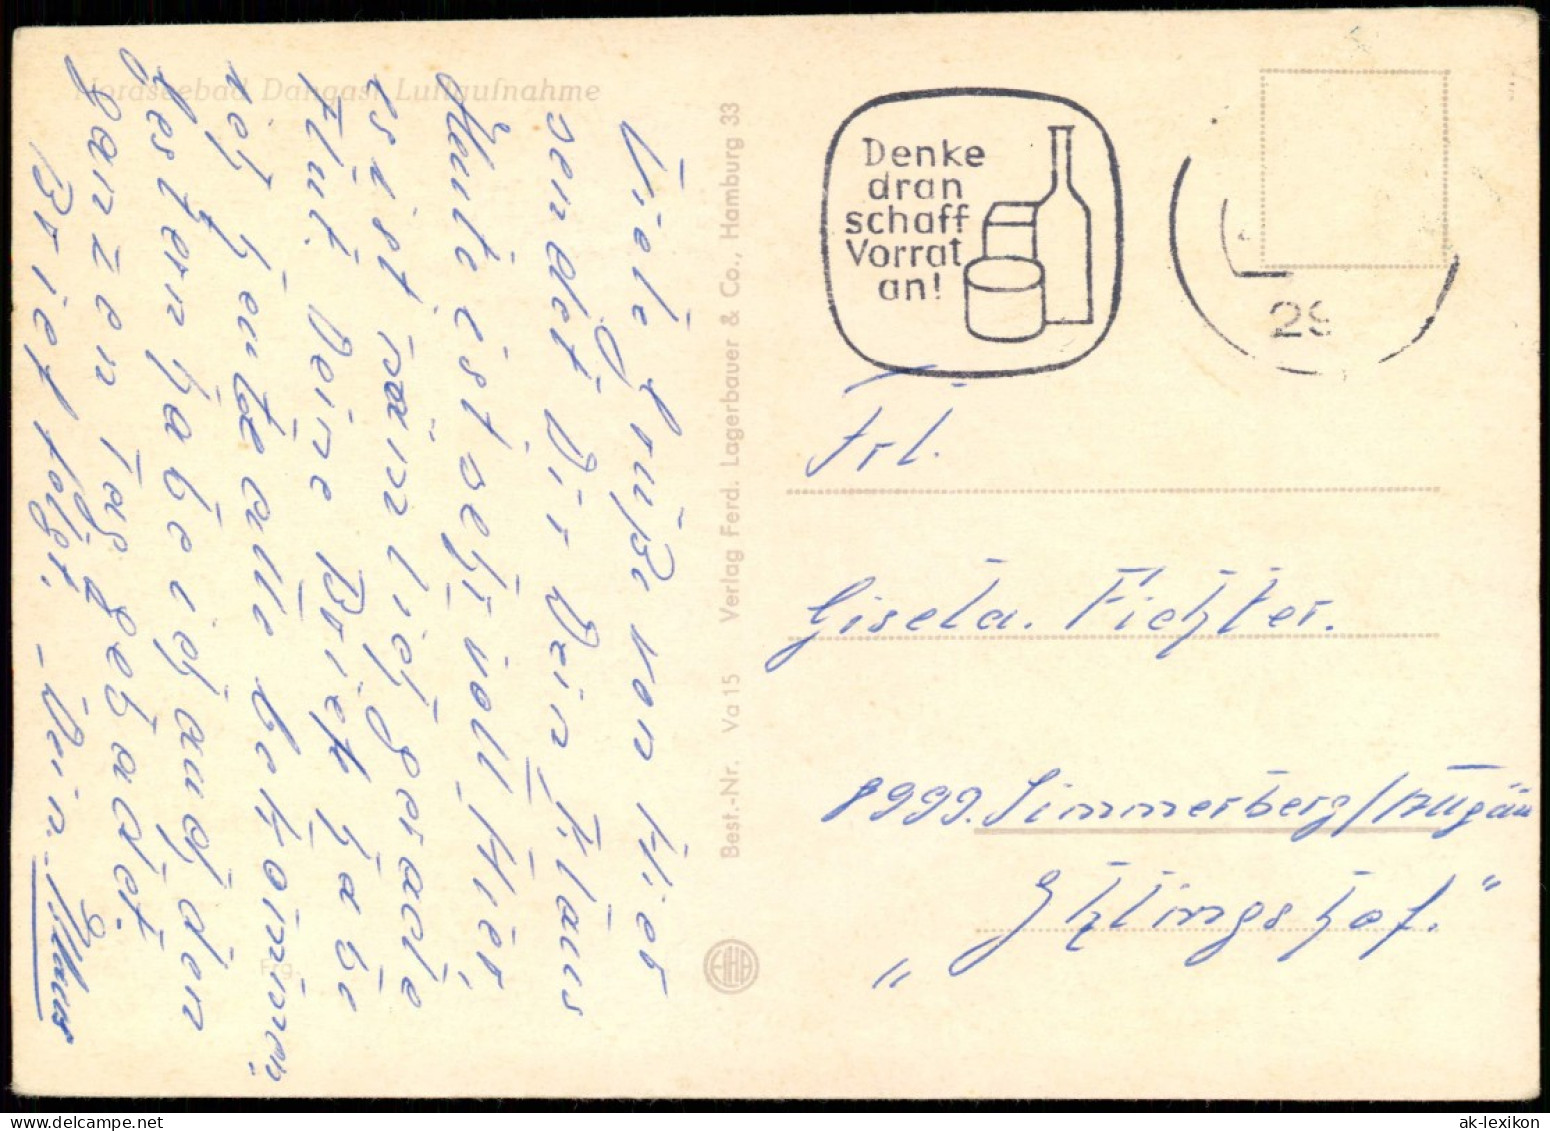 Nordseebad Dangast Luftaufnahme
Viele Grüße von Hier
sendet Dir Dein Klaus
Heute ist sehr voll Hier,
es ist nämlich gerade
Flut. Deine Brief habe
ich heute alle bekommen,
gestern habe ich auch den
ganzen Tag gebadet.
Brief folgt. - Dein. Klaus
Best.-Nr. Va 15 Verlag Ferd. Lagerbauer & Co., Hamburg 33
Denke
dran
schaff
Vorrat
an!
29
Frl.
Gisela. Fichter.
8999. Simmerberg/Allgäu
ak-lexikon